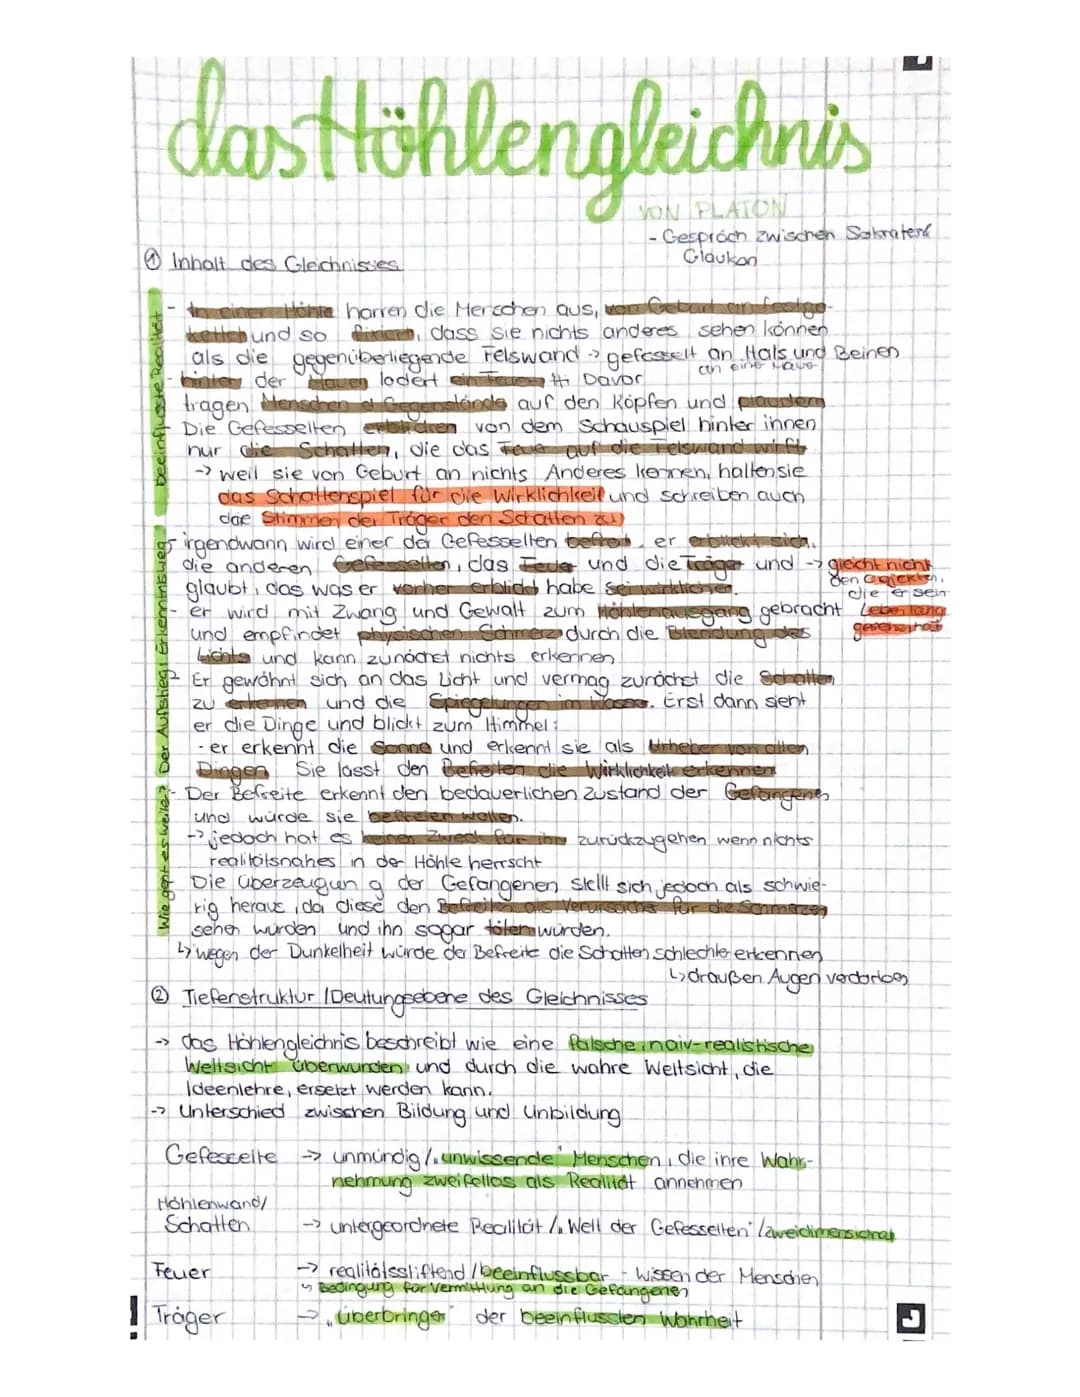 das Höhlengleichnis
VON PLATON
- Gespräch zwischen Sokrates &
Glaukon
① Inhalt des Gleichnisses
beeinflusste Realität
- In einer Höhle harren die Menschen aus, von Geburt an festge-
kettet und so fixiert, dass sie nichts anderes sehen können
als die gegenüberliegende Felswand -> gefesselt an Hals und Beinen
an einer Mauer
- hinter der Mauer lodert ein Feuer Davor
tragen Menschen Gegenstände auf den Köpfen und plaudern
- Die Gefesselten erblicken von dem Schauspiel hinter ihnen
nur die Schatten, die das Feuer auf die Felswand wirft
-> weil sie von Geburt an nichts Anderes kennen, halten sie
das Schattenspiel für die Wirklichkeit und schreiben auch
die Stimmen der Träger den Schatten zu
Der Aufstieg: Erkenntnisweg
- irgendwann wird einer der Gefesselten befreit, er erblickt sich,
die anderen Gefesselten, das Feuer und die Träger und -> gleicht nicht
den Objekten,
die er sein
Leben lang
gesehen hat
glaubt, das was er vorher erblickt habe sei wirklicher.
- er wird mit Zwang und Gewalt zum Höhlenausgang gebracht
und empfindet physischen Schmerz durch die Blendung des
Lichts und kann zunächst nichts erkennen
- Er gewöhnt sich an das Licht und vermag zunächst die Schatten
zu erkennen und die Spiegelungen im Wasser. Erst dann sieht
er die Dinge und blickt zum Himmel:
- er erkennt die Sonne und erkennt sie als Urheber von allen
Dingen Sie lässt den Befreiten die Wirklichkeit erkennen
Wie geht es weiter?
- Der Befreite erkennt den bedauerlichen Zustand der Gefangenen
und würde sie befreien wollen.
-> jedoch hat es keinen Zweck für ihn zurückzugehen wenn nichts
realitätsnahes in der Höhle herrscht
- Die Überzeugun g der Gefangenen stellt sich jedoch als schwie-
rig heraus, da diese den Befreiten als Verursacher für die Schmerzen
sehen würden und ihn sogar töten würden.
↳ wegen der Dunkelheit würde der Befreite die Schatten schlechter erkennen
↳ draußen Augen verdorben
② Tiefenstruktur / Deutungsebene des Gleichnisses
-> das Höhlengleichnis beschreibt wie eine falsche, naiv-realistische
Weltsicht überwunden und durch die wahre Weltsicht, die
Ideenlehre, ersetzt werden kann.
-> Unterschied zwischen Bildung und Unbildung
Gefesselte -> unmündig / "unwissende" Menschen, die ihre Wahr-
nehmung zweifellos als Realität annehmen
Höhlenwand/
Schatten -> untergeordnete Realität / "Welt der Gefesselten" / zweidimensional
Feuer -> realitätsstiftend / beeinflussbar - Wissen der Menschen
↳ Bedingung für Vermittlung an die Gefangenen
Träger -> "Überbringer" der beeinflussten Wahrheit